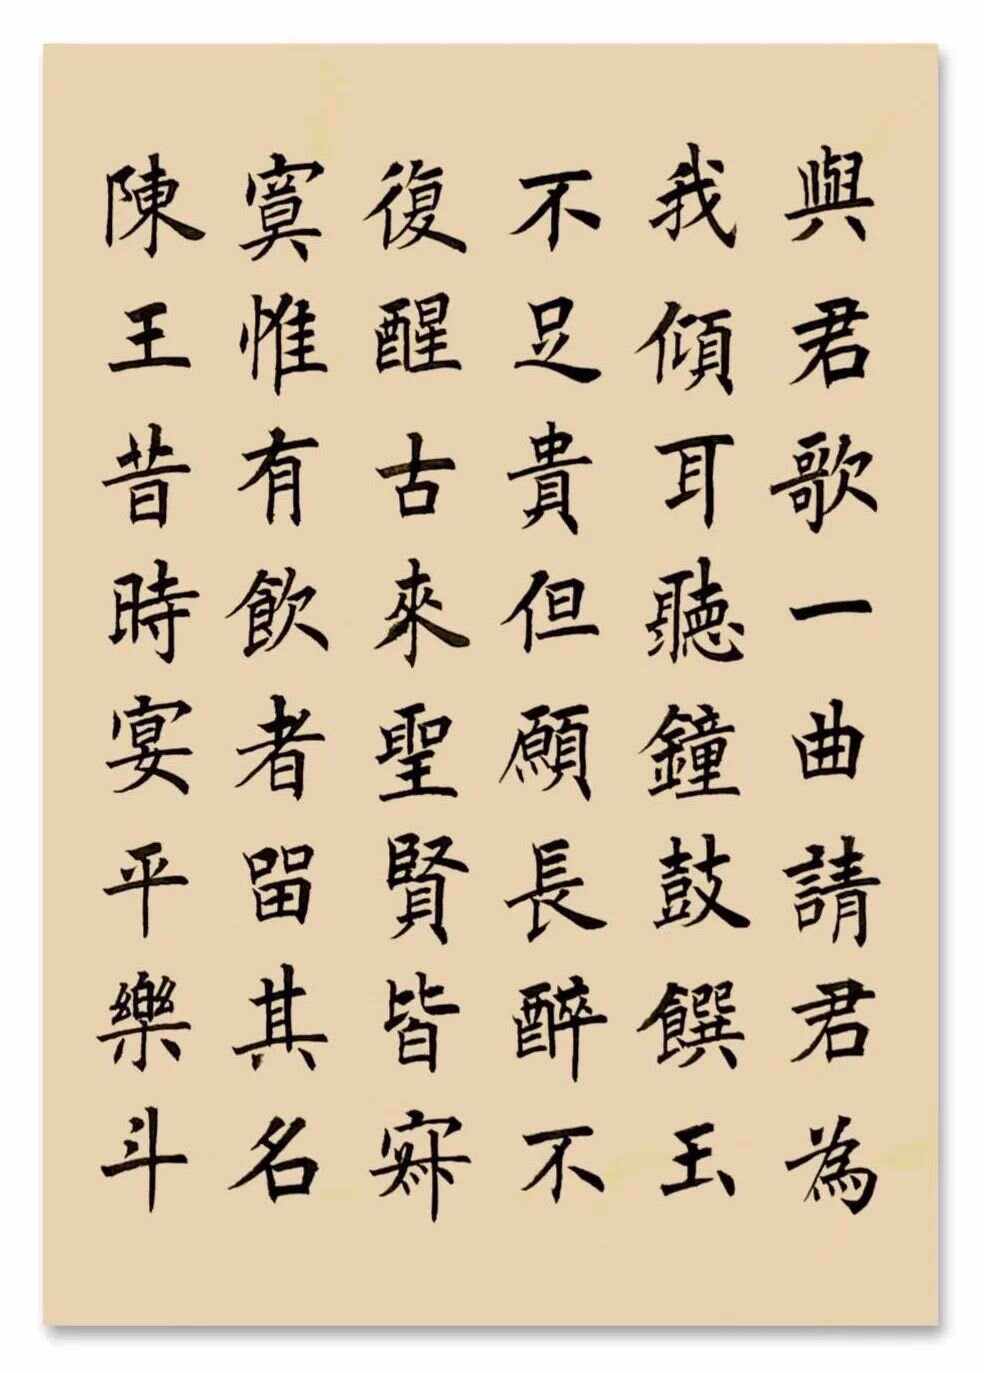 與君歌一曲請君為
我傾耳聽鐘鼓饌玉
不足貴但願長醉不
復醒古來聖賢皆寂
寞惟有飲者留其名
陳王昔時宴平樂斗